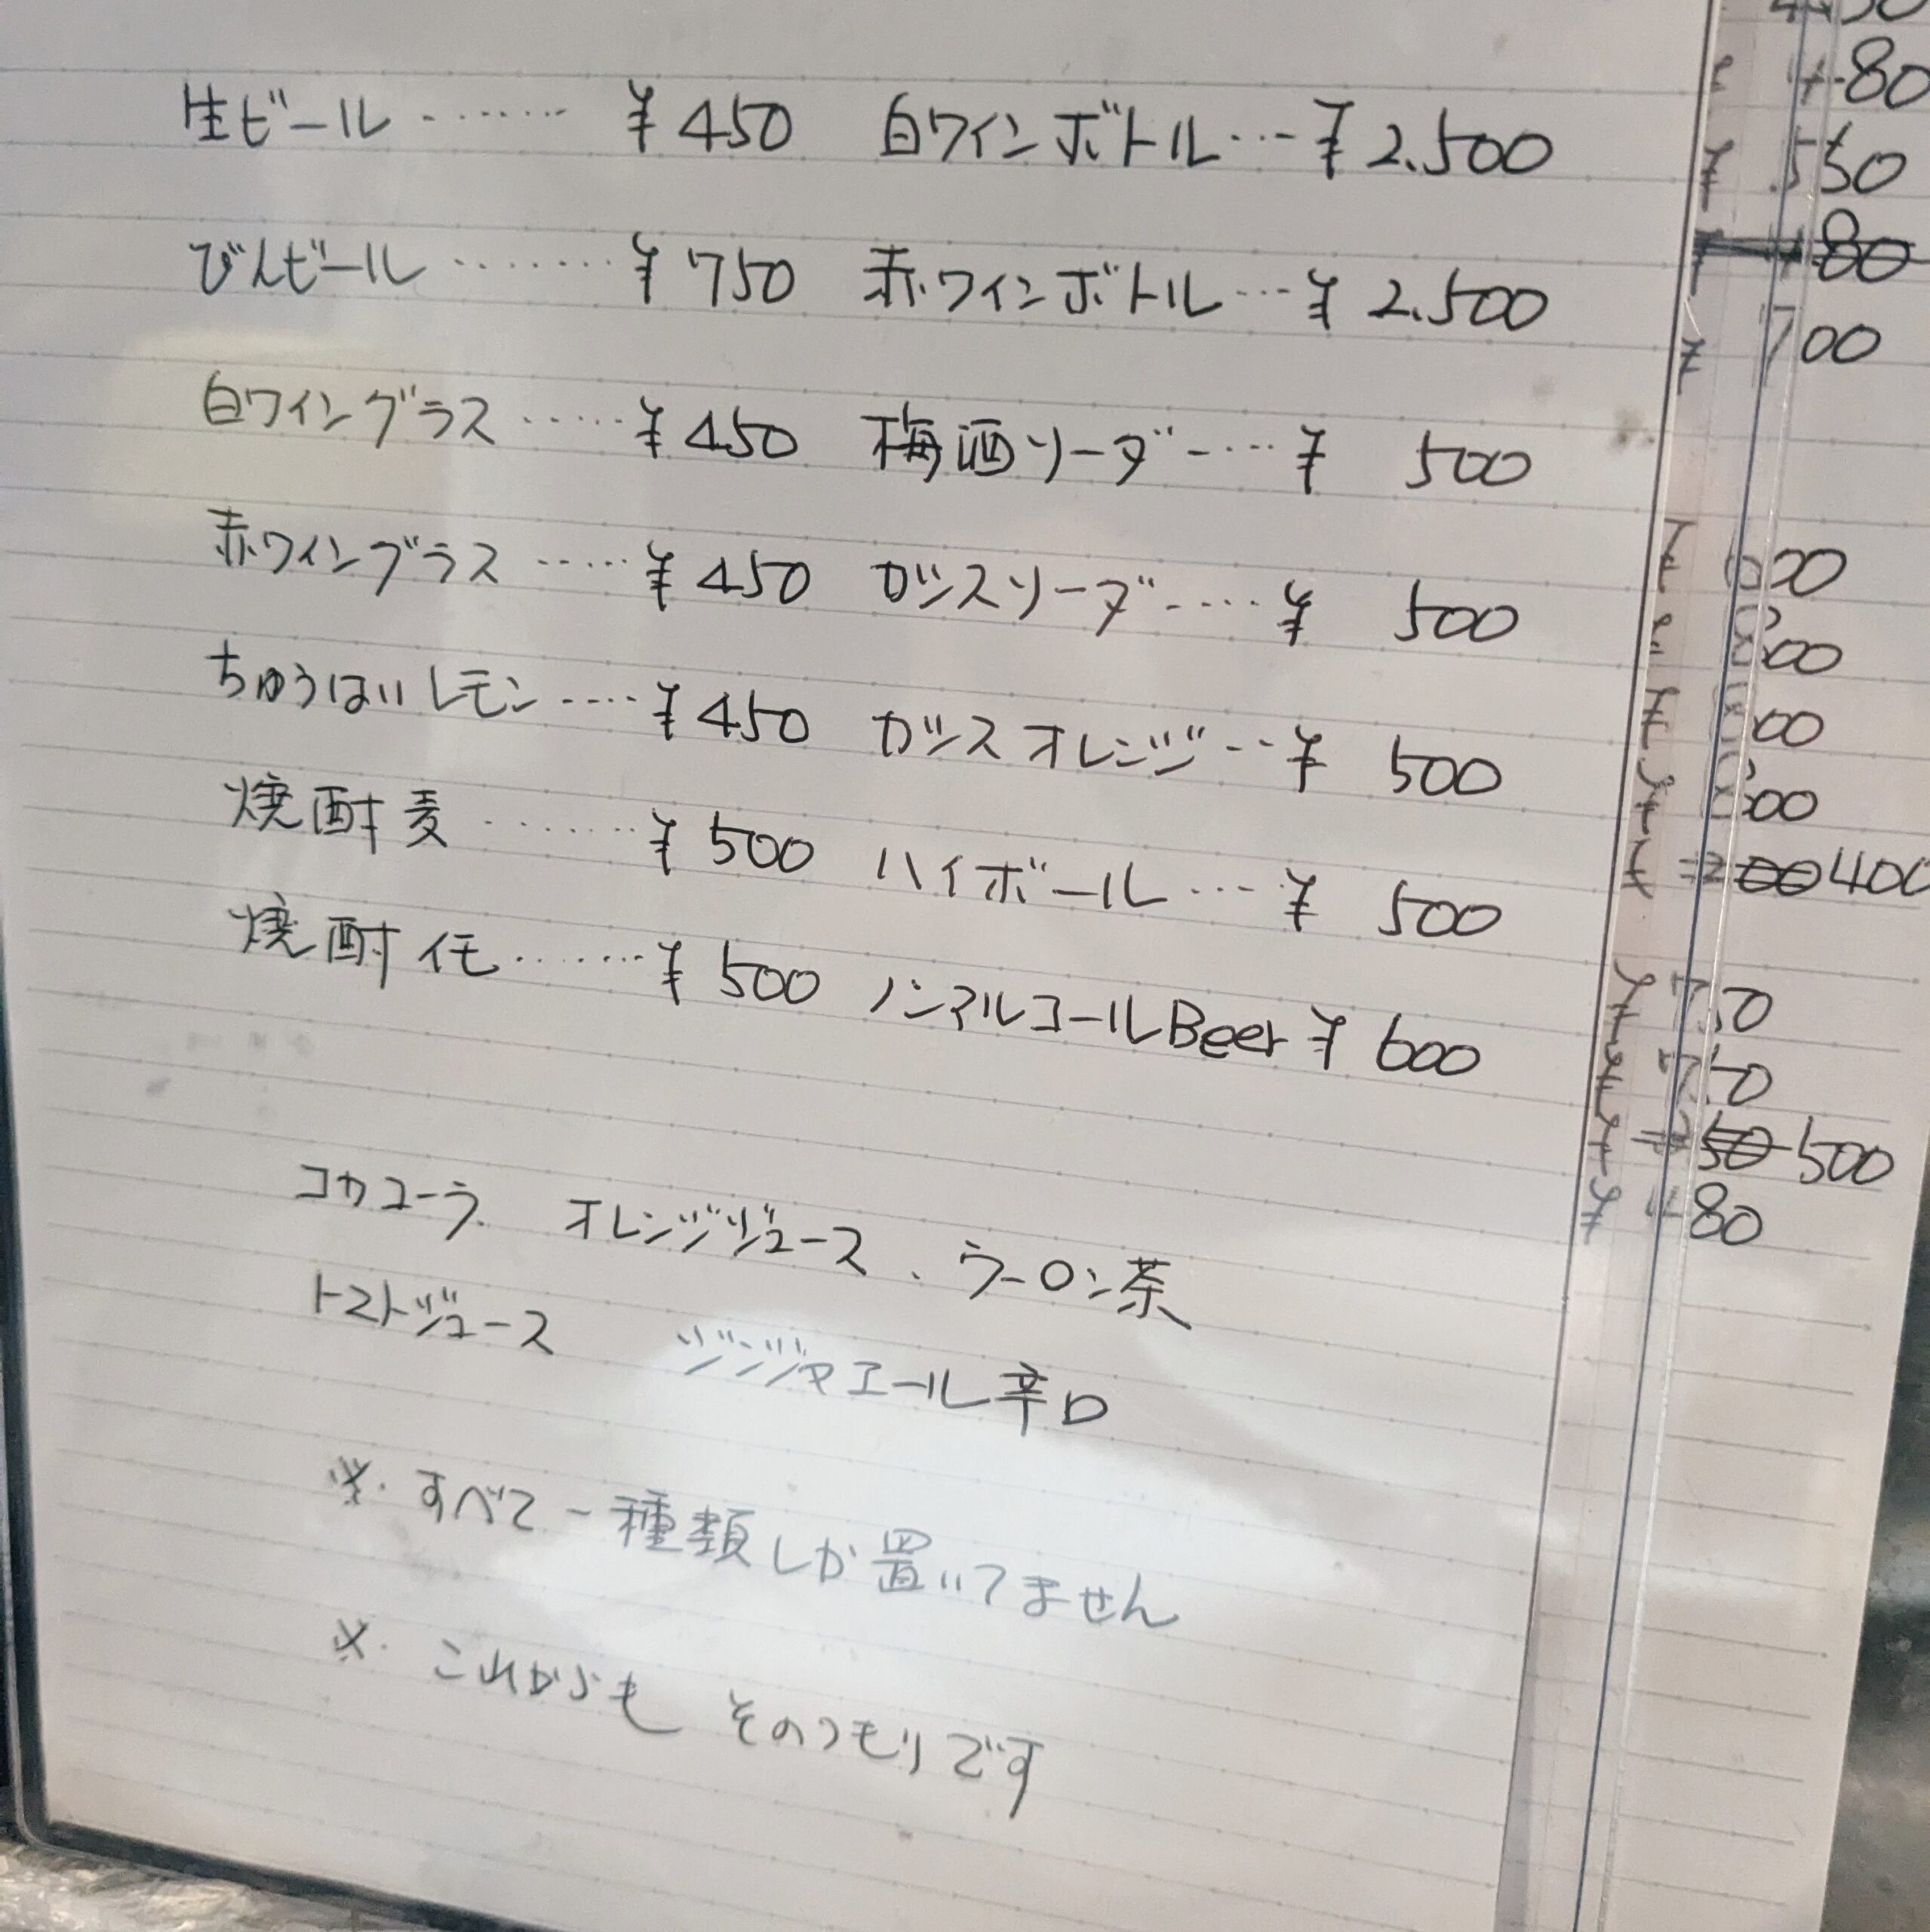 生ビール ‥‥‥ ¥450 白ワインボトル … ¥2.500
びんビール ‥‥‥‥ ¥750 赤ワインボトル … ¥2.500
白ワイングラス ‥‥‥ ¥450 梅酒ソーダ ‥‥ ¥ 500
赤ワイングラス ‥‥‥ ¥450 カシスソーダ ‥‥ ¥ 500
ちゅうはいレモン ‥‥ ¥450 カシスオレンジ ‥ ¥ 500
焼酎麦 ‥‥‥‥ ¥500 ハイボール … ¥ 500
焼酎イモ ‥‥‥ ¥500 ノンアルコールBeer ¥ 600
コカコーラ、 オレンジジュース、 ウーロン茶
トマトジュース ジンジャエール辛口
※. すべて一種類しか置いてません
※. これからも そのつもりです
480
¥ 550
¥ 700
400
500
¥ 480